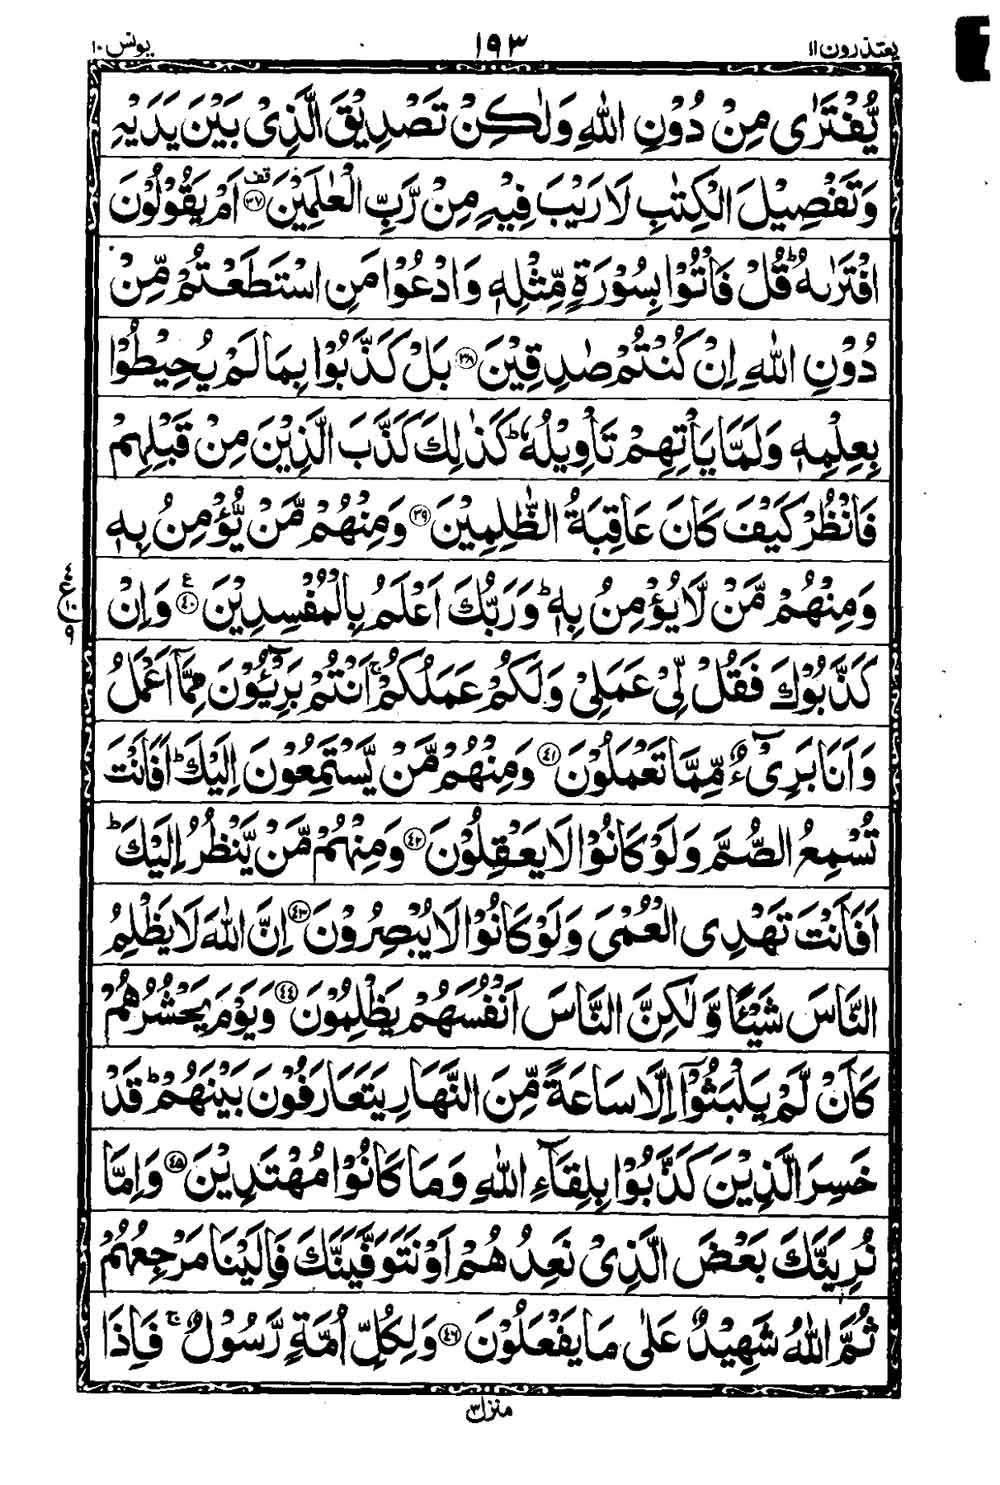 یعتذرون ۱۱ ۱۹۳ یونس ۱۰
یُّفْتَرٰی مِنْ دُوْنِ اللّٰهِ وَلٰكِنْ تَصْدِیْقَ الَّذِیْ بَیْنَ یَدَیْهِ
وَتَفْصِیْلَ الْكِتٰبِ لَا رَیْبَ فِیْهِ مِنْ رَّبِّ الْعٰلَمِیْنَ ۣ۳۷ قف اَمْ یَقُوْلُوْنَ
افْتَرٰىهُ ؕ قُلْ فَاْتُوْا بِسُوْرَةٍ مِّثْلِهٖ وَادْعُوْا مَنِ اسْتَطَعْتُمْ مِّنْ
دُوْنِ اللّٰهِ اِنْ كُنْتُمْ صٰدِقِیْنَ ۳۸ بَلْ كَذَّبُوْا بِمَا لَمْ یُحِیْطُوْا
بِعِلْمِهٖ وَلَمَّا یَاْتِهِمْ تَاْوِیْلُهٗ ؕ كَذٰلِكَ كَذَّبَ الَّذِیْنَ مِنْ قَبْلِهِمْ
فَانْظُرْ كَیْفَ كَانَ عَاقِبَةُ الظّٰلِمِیْنَ ۳۹ وَمِنْهُمْ مَّنْ یُّؤْمِنُ بِهٖ
وَمِنْهُمْ مَّنْ لَّا یُؤْمِنُ بِهٖ ؕ وَرَبُّكَ اَعْلَمُ بِالْمُفْسِدِیْنَ ۴۰ ع وَاِنْ
كَذَّبُوْكَ فَقُلْ لِّیْ عَمَلِیْ وَلَكُمْ عَمَلُكُمْ ۚ اَنْتُمْ بَرِیْٓـُٔوْنَ مِمَّاۤ اَعْمَلُ
وَاَنَا بَرِیْٓءٌ مِّمَّا تَعْمَلُوْنَ ۴۱ وَمِنْهُمْ مَّنْ یَّسْتَمِعُوْنَ اِلَیْكَ ؕ اَفَاَنْتَ
تُسْمِعُ الصُّمَّ وَلَوْ كَانُوْا لَا یَعْقِلُوْنَ ۴۲ وَمِنْهُمْ مَّنْ یَّنْظُرُ اِلَیْكَ ؕ
اَفَاَنْتَ تَهْدِی الْعُمْیَ وَلَوْ كَانُوْا لَا یُبْصِرُوْنَ ۴۳ اِنَّ اللّٰهَ لَا یَظْلِمُ
النَّاسَ شَیْـًٔا وَّلٰكِنَّ النَّاسَ اَنْفُسَهُمْ یَظْلِمُوْنَ ۴۴ وَیَوْمَ یَحْشُرُهُمْ
كَاَنْ لَّمْ یَلْبَثُوْۤا اِلَّا سَاعَةً مِّنَ النَّهَارِ یَتَعَارَفُوْنَ بَیْنَهُمْ ؕ قَدْ
خَسِرَ الَّذِیْنَ كَذَّبُوْا بِلِقَآءِ اللّٰهِ وَمَا كَانُوْا مُهْتَدِیْنَ ۴۵ وَاِمَّا
نُرِیَنَّكَ بَعْضَ الَّذِیْ نَعِدُهُمْ اَوْ نَتَوَفَّیَنَّكَ فَاِلَیْنَا مَرْجِعُهُمْ
ثُمَّ اللّٰهُ شَهِیْدٌ عَلٰی مَا یَفْعَلُوْنَ ۴۶ وَلِكُلِّ اُمَّةٍ رَّسُوْلٌ ۚ فَاِذَا
منزل ۳